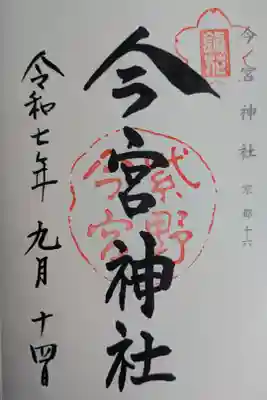 今宮神社
京都十六
今宮神社
紫野
今宮
令和七年 九月 十四日